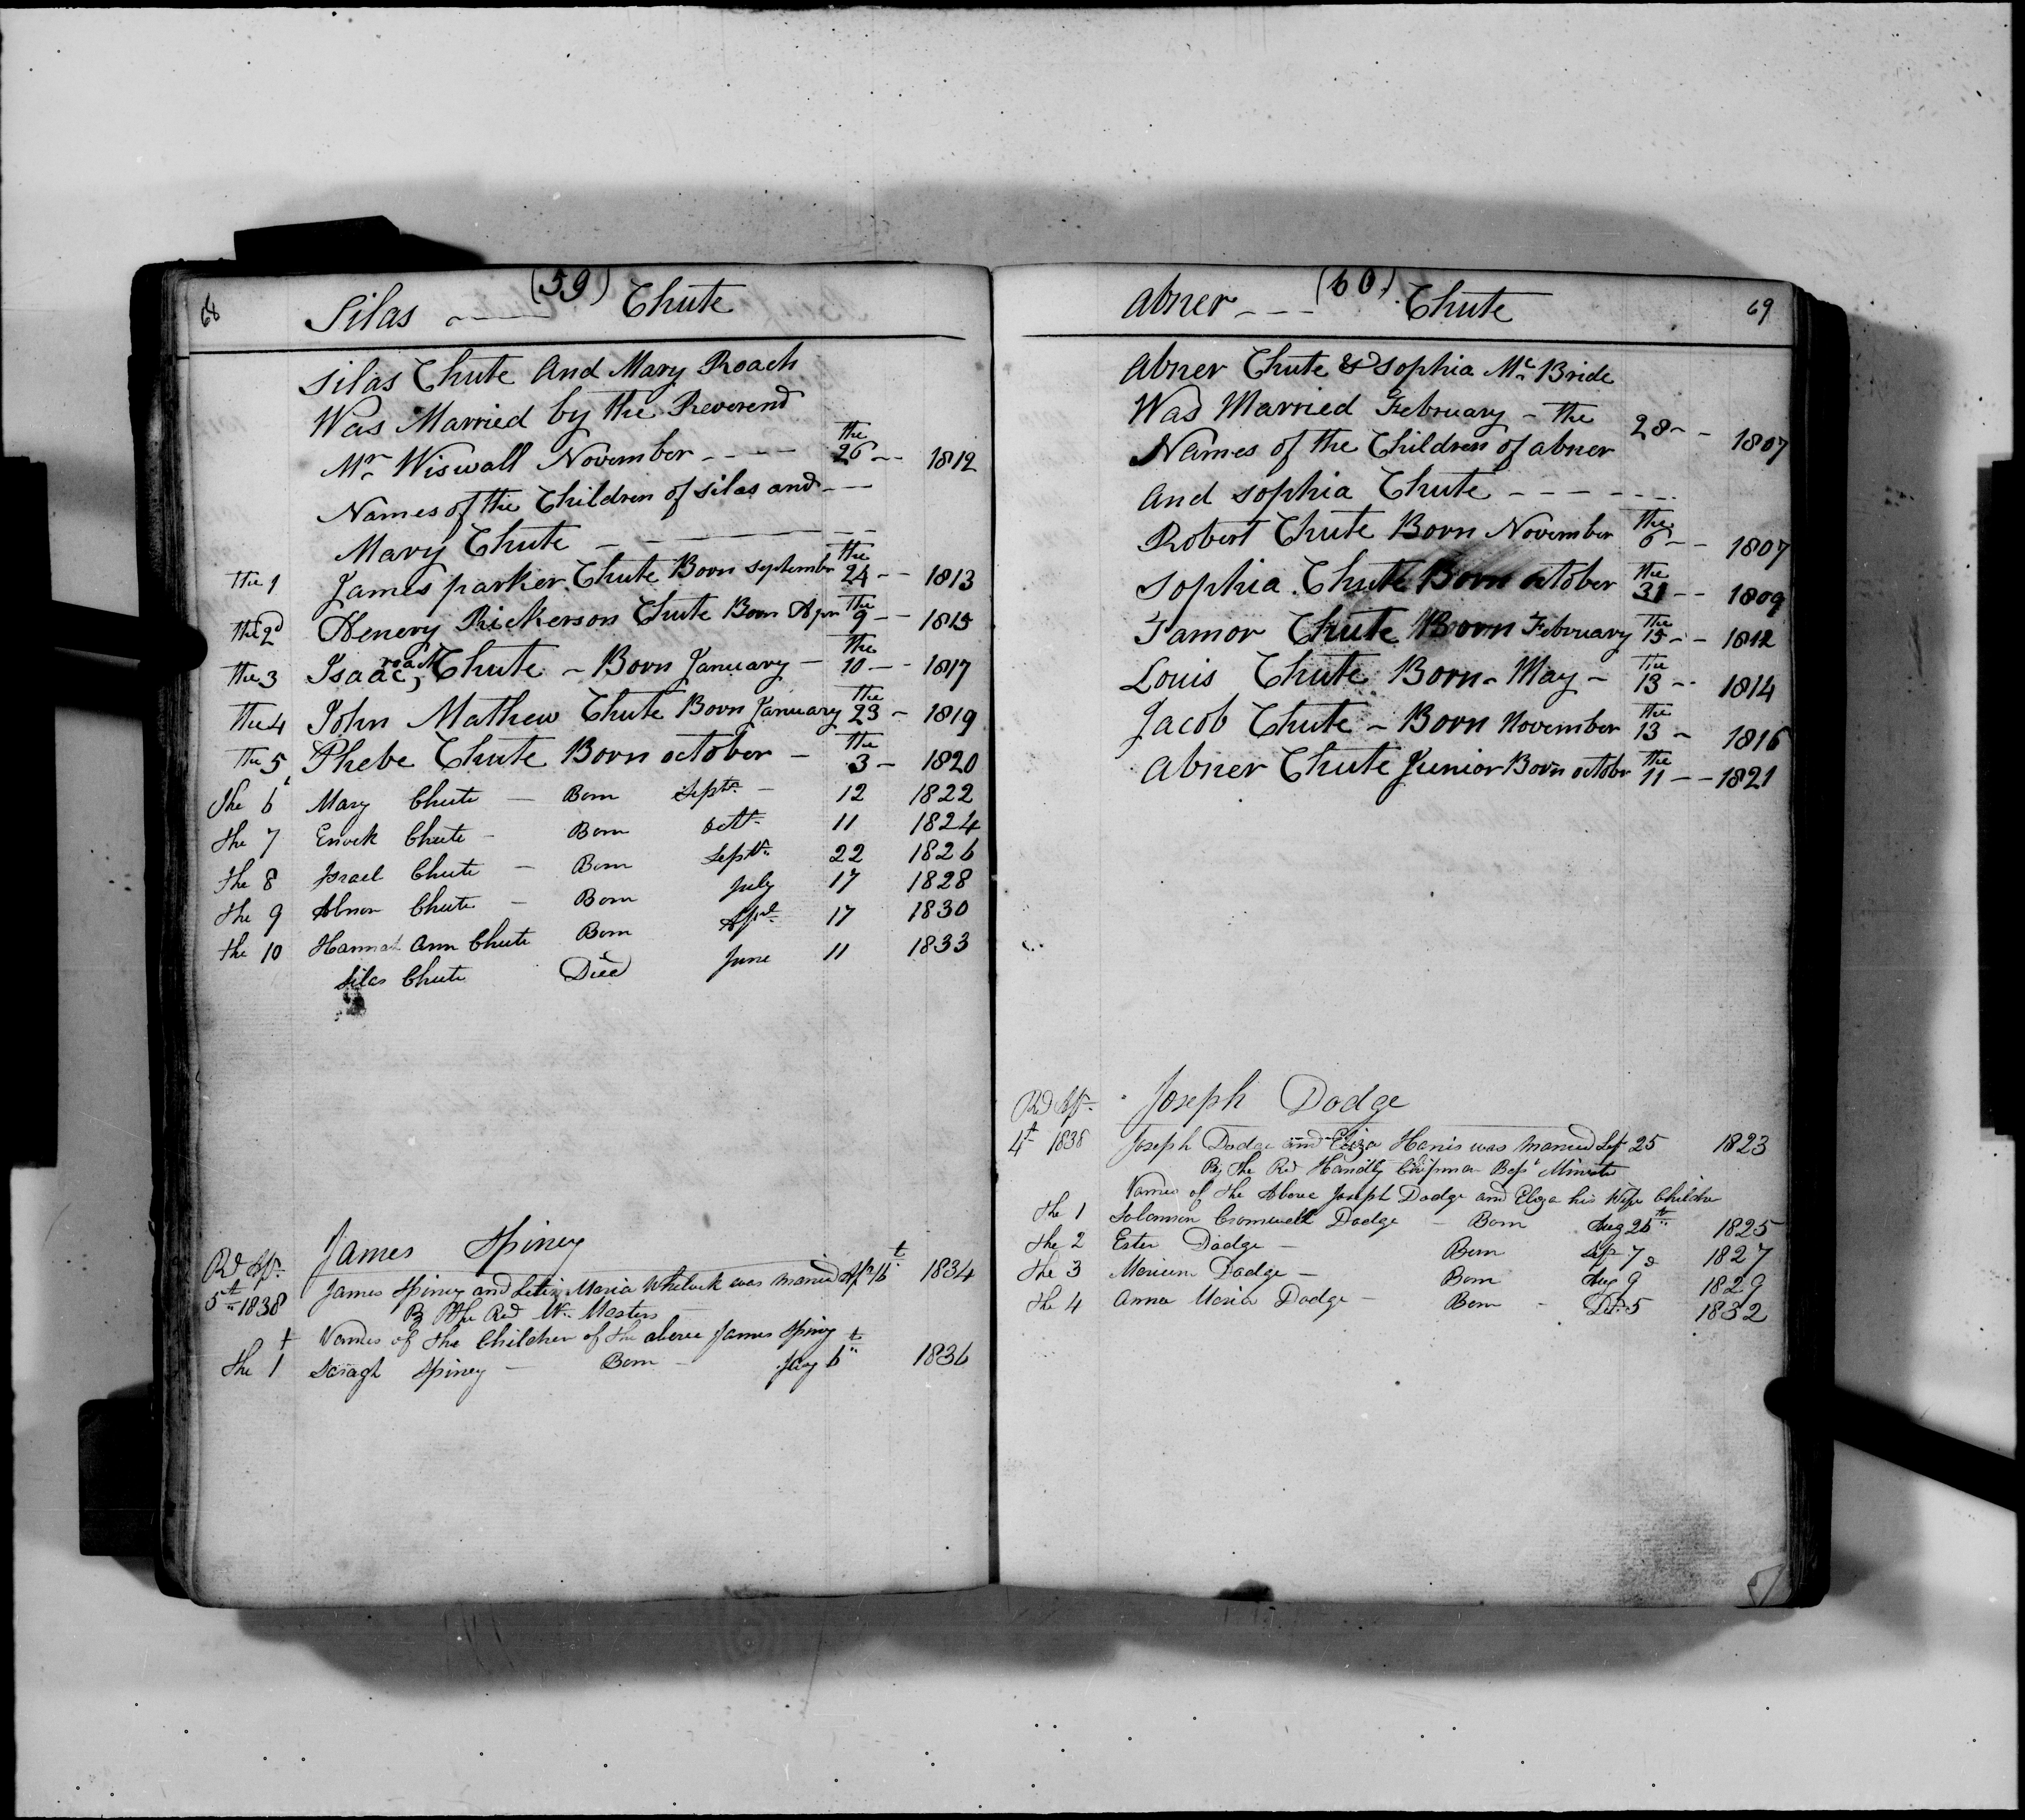 68
(59)
Silas Chute
Silas Chute And Mary Roach
Was Married by the Reverend
Mr Wiswall November - - - - the 26 - - 1812
Names of the Children of Silas and - -
Mary Chute
The 1 James parker Chute Born September the 24 - - 1813
the 2d Henery Rickerson Chute Born Apr the 9 - - 1815
the 3 Isaac, roach Chute - Born January - the 10 - - 1817
the 4 John Mathew Chute Born January the 23 - 1819
the 5 Phebe Chute Born october - the 3 - 1820
the 6 Mary Chute - Born Septr - 12 1822
the 7 Enock Chute - Born octr 11 1824
the 8 Israel Chute - Born Septr 22 1826
the 9 Abner Chute - Born July 17 1828
the 10 Hannah Ann Chute Born Aprl 17 1830
Silas Chute Died June 11 1833
James Spiney
Rd Apr
5th 1838 James Spiney and Maria Whelock was maried Apr 16t 1834
By the Rd Mr Masters
Names of the Children of the above James Spiney
the 1t Saragh Spiney - Born - 6th 1836
(60)
69
Abner - - - Chute
Abner Chute & Sophia Mc Bride
Was Married February - the 28 - - 1807
Names of the Children of abner
And Sophia Chute - - - - - -
Robert Chute Born November the 6 - - 1807
Sophia Chute Born october the 31 - - 1809
Tamor Chute Born February the 15 - - 1812
Louis Chute Born - May - the 13 - - 1814
Jacob Chute - Born November the 13 - 1816
Abner Chute Junior Born octobr the 11 - - 1821
Rd Apr Joseph Dodge
4th 1838 Joseph Dodge and Eliza Harris was maried Sep 25 1823
By the Rd Handly Chipman Bapt
Names of the Above Joseph Dodge and Eliza his Wife Childre
the 1 Solomon Cromwell Dodge - Born Aug 26th 1825
the 2 Ester Dodge - Born Sep 7 1827
the 3 Merium Dodge - Born Aug 9 1829
the 4 Anna Maria Dodge - Born - 5 1832